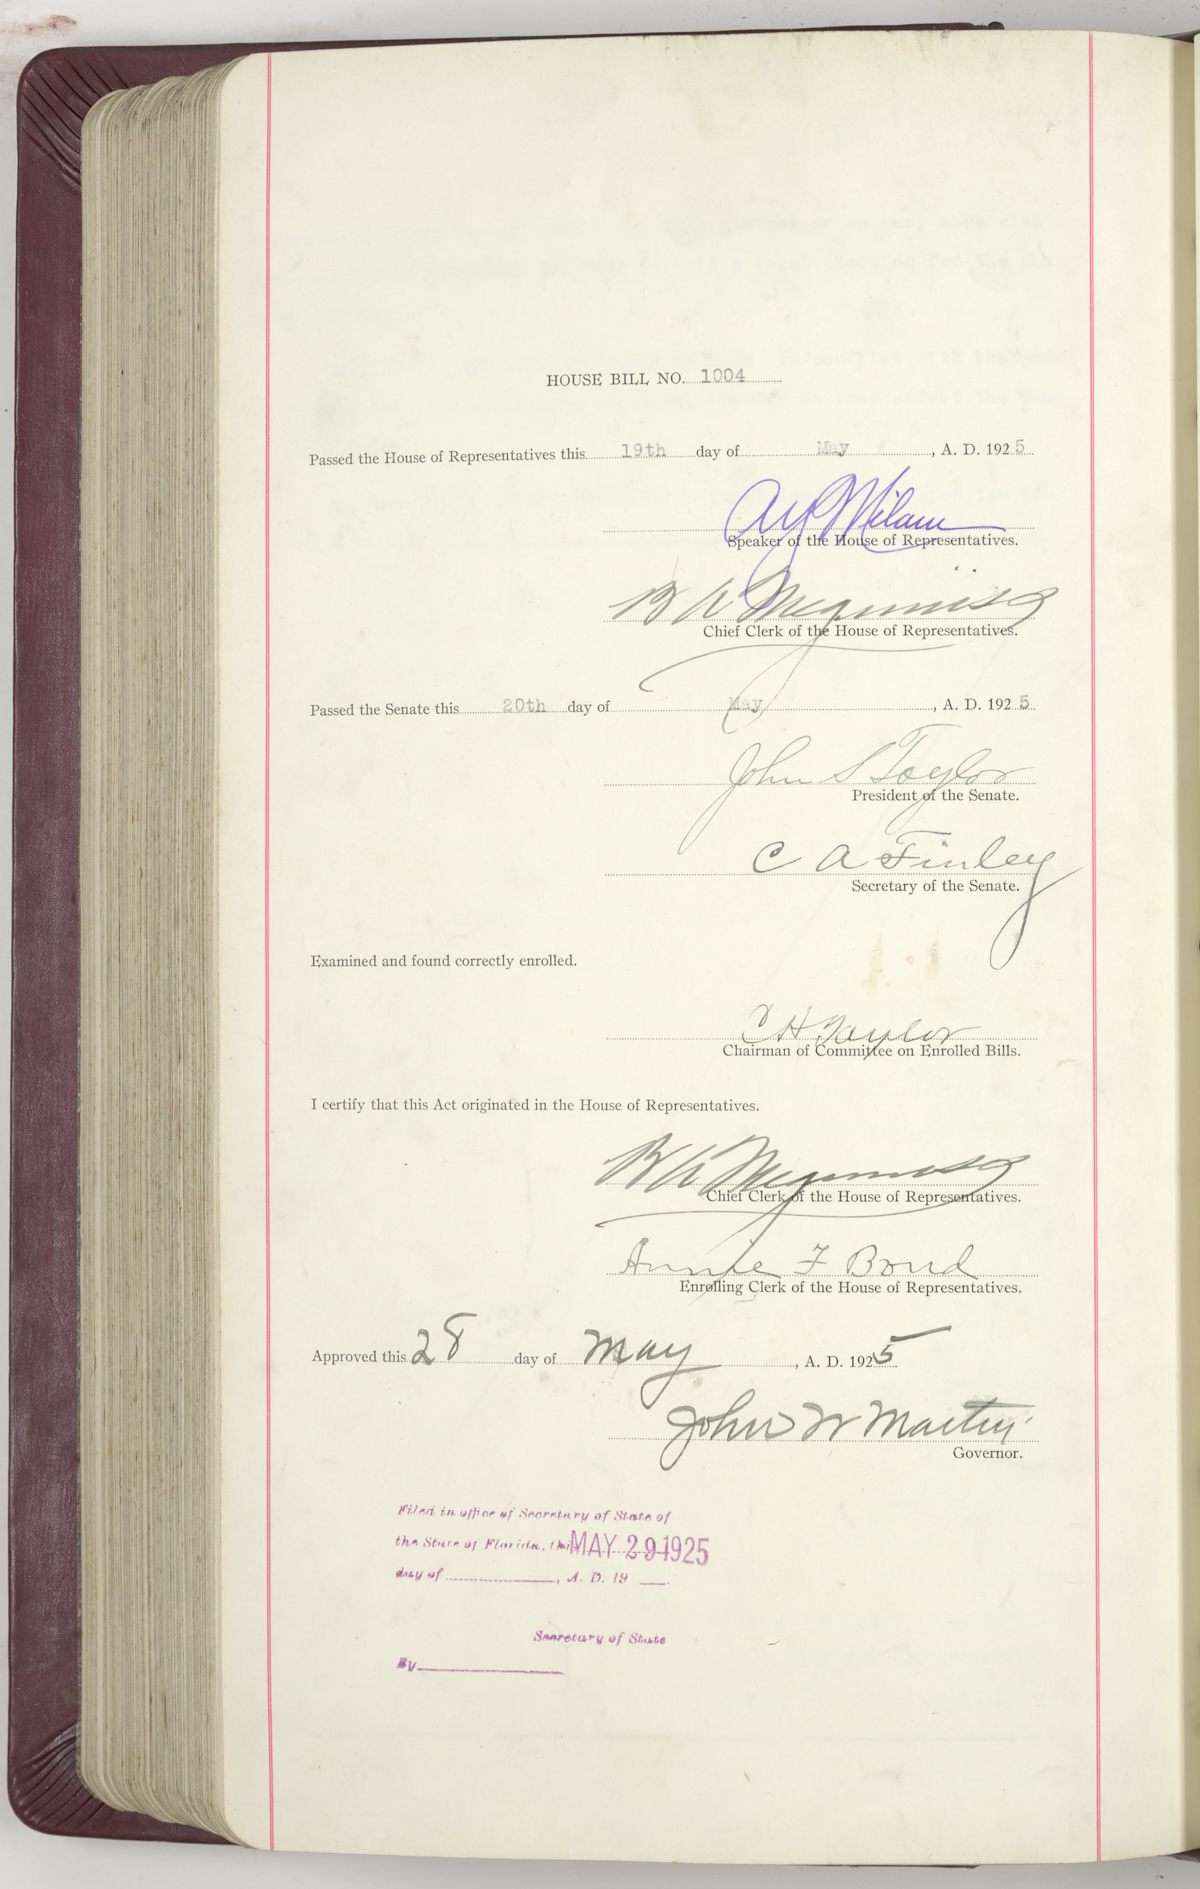 HOUSE BILL NO. 1004
Passed the House of Representatives this 19th day of May, A. D. 1925
A Y Milam
Speaker of the House of Representatives.
B A Meginniss
Chief Clerk of the House of Representatives.
Passed the Senate this 20th day of May, A. D. 1925
John S Taylor
President of the Senate.
C A Finley
Secretary of the Senate.
Examined and found correctly enrolled.
C H Taylor
Chairman of Committee on Enrolled Bills.
I certify that this Act originated in the House of Representatives.
B A Meginniss
Chief Clerk of the House of Representatives.
Annie F Bond
Enrolling Clerk of the House of Representatives.
Approved this 28 day of May, A. D. 1925
John W Martin
Governor.
Filed in office of Secretary of State of
the State of Florida, this MAY 29 1925
day of , A. D. 19
Secretary of State
By